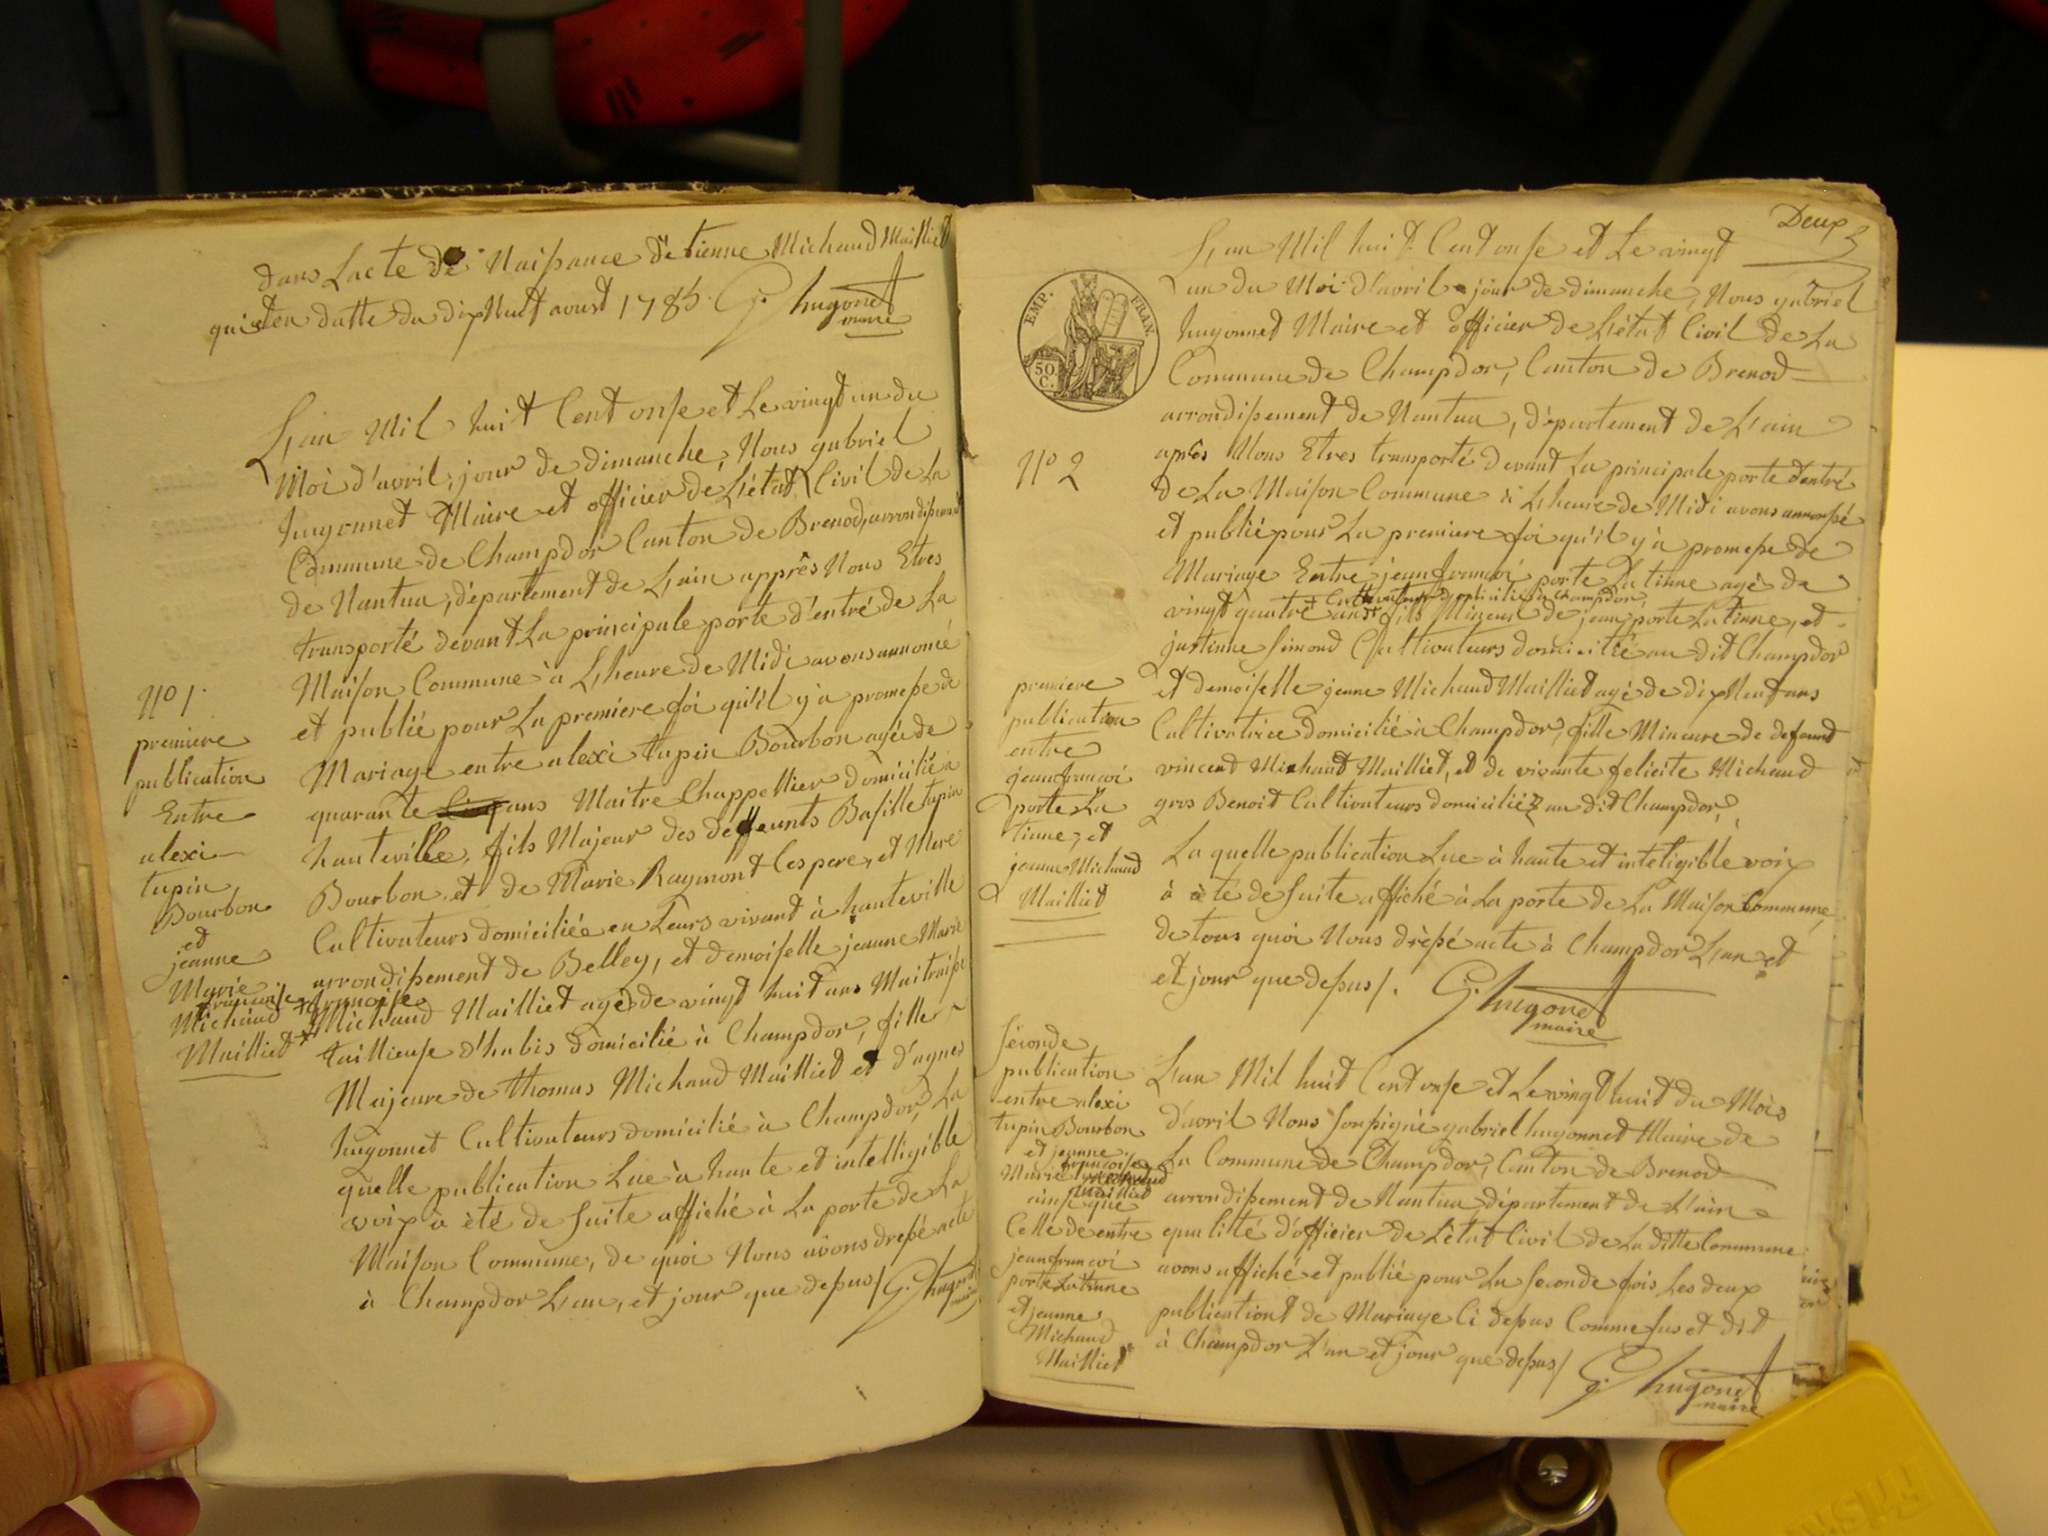 dans Lacte de Naissance d'etienne Michaud Mailliet
qui est en datte du dix Huit aoust 1785. G. hugonet
maire
L'an Mil huit Cent onse et Le vingt un du
Moi d'avril, jour de dimanche, Nous gabriel
hugonnet Maire et officier de L'état Civil de La
Commune de Champdor Canton de Brenod, arrondissement
de Nantua, département de L'ain apprês Nous Etres
transporté devant La principale porte d'entré de La
Maison Commune à L'heure de Midi avons annoncé
et publié pour La premiere foi qu'il y a promesse de
Mariage entre alexi tupin Bourbon agé de
quarante ans Maitre Chappellier domicilié a
hauteville, fils Majeur des deffeunts Basille tupin
Bourbon et de Marie Raymont Ces pere, et Mere
Cultivateurs domiciliée en Leurs vivant à hauteville
arrondissement de Belley, et demoiselle jeanne Marie
francoise
Michaud Mailliet agés de vingt huit ans Maitraisse
taillieuse d'habis domicilié à Champdor, fille
Majeure de thomas Michaud Mailliet et d'agnes
hugonnet Cultivateurs domicilié à Champdor, La
quelle publication Lue à haute et intelligible
voix à été de suite affiché à La porte de La
Maison Commune, de quoi Nous avons dressé acte
à Champdor L'an, et jour que dessus / G. hugonet
maire
N° 1.
premiere
publication
Entre
alexi
tupin
Bourbon
et
jeanne
Marie
francoise
Michaud
Mailliet
Deux
L'an Mil huit Cent onse et Le vingt
un du Moi d'avril jour de dimanche, Nous gabriel
hugonnet Maire et officier de L'état Civil de La
Commune de Champdor, Canton de Brenod
arrondissement de Nantua, département de L'ain
après Nous Etres transporté devant La principale porte d'entré
de La Maison Commune à L'heure de Midi avons annonsé
et publié pour La premiere foi qu'il y à promesse de
Mariage Entre jean françoi porte La tinne agé de
+ Cultivateur domicilié à Champdor,
vingt quatre ans + fils Mineur de jean porte La tinne, et
justinne Simond Cultivateurs domicilié au dit Champdor
et demoiselle jenne Michaud Mailliet agé de dix Neuf ans
Cultivatrice domicilié à Champdor, fille Mineure de defeund
vincent Michaud Mailliet, et de vivante felicite Michaud
gros Benoit Cultivateurs domiciliéz au dit Champdor,
La quelle publication Lue à haute et inteligible voix
à été de suite affiché à La porte de La Maison Commune
de tous quoi Nous drèssé acte à Champdor L'an et
et jour que dessus /. G. hugonet
maire
EMP. FRAN.
50
C.
N° 2
premiere
publication
entre
jean françoi
porte La
tinne, et
jeanne Michaud
Mailliet
L'an Mil huit Cent onse et Le vingt huit du Mois
d'avril Nous soussigné gabriel hugonnet Maire de
La Commune de Champdor, Canton de Brenod
arrondissement de Nantua, département de L'ain
equalitté d'officier de L'état Civil de La ditte Commune
avons affiché et publié pour La Seconde fois Les deux
publications de Mariage Ci dessus Comme sus et dit
à Champdor L'an et jour que dessus / G. hugonet
maire
séconde
publication
entre alexi
tupin Bourbon
et jeanne
Marie francoise
Michaud
Mailliet
ainsi que
Celle de entre
jean françoi
porte La tinne
et jeanne
Michaud
Mailliet